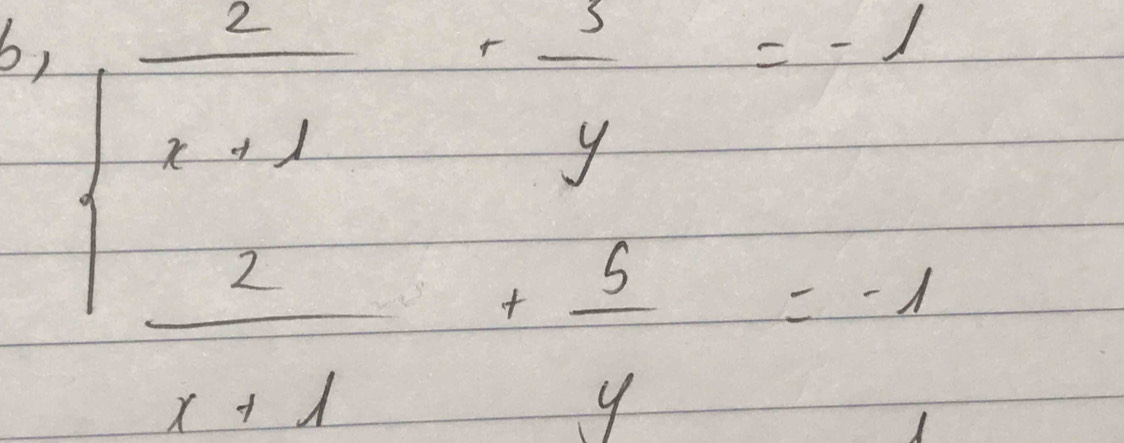 b, { 2/(x + 1) + 3/y = - 1
2/(x + 1) + 5/y = - 1